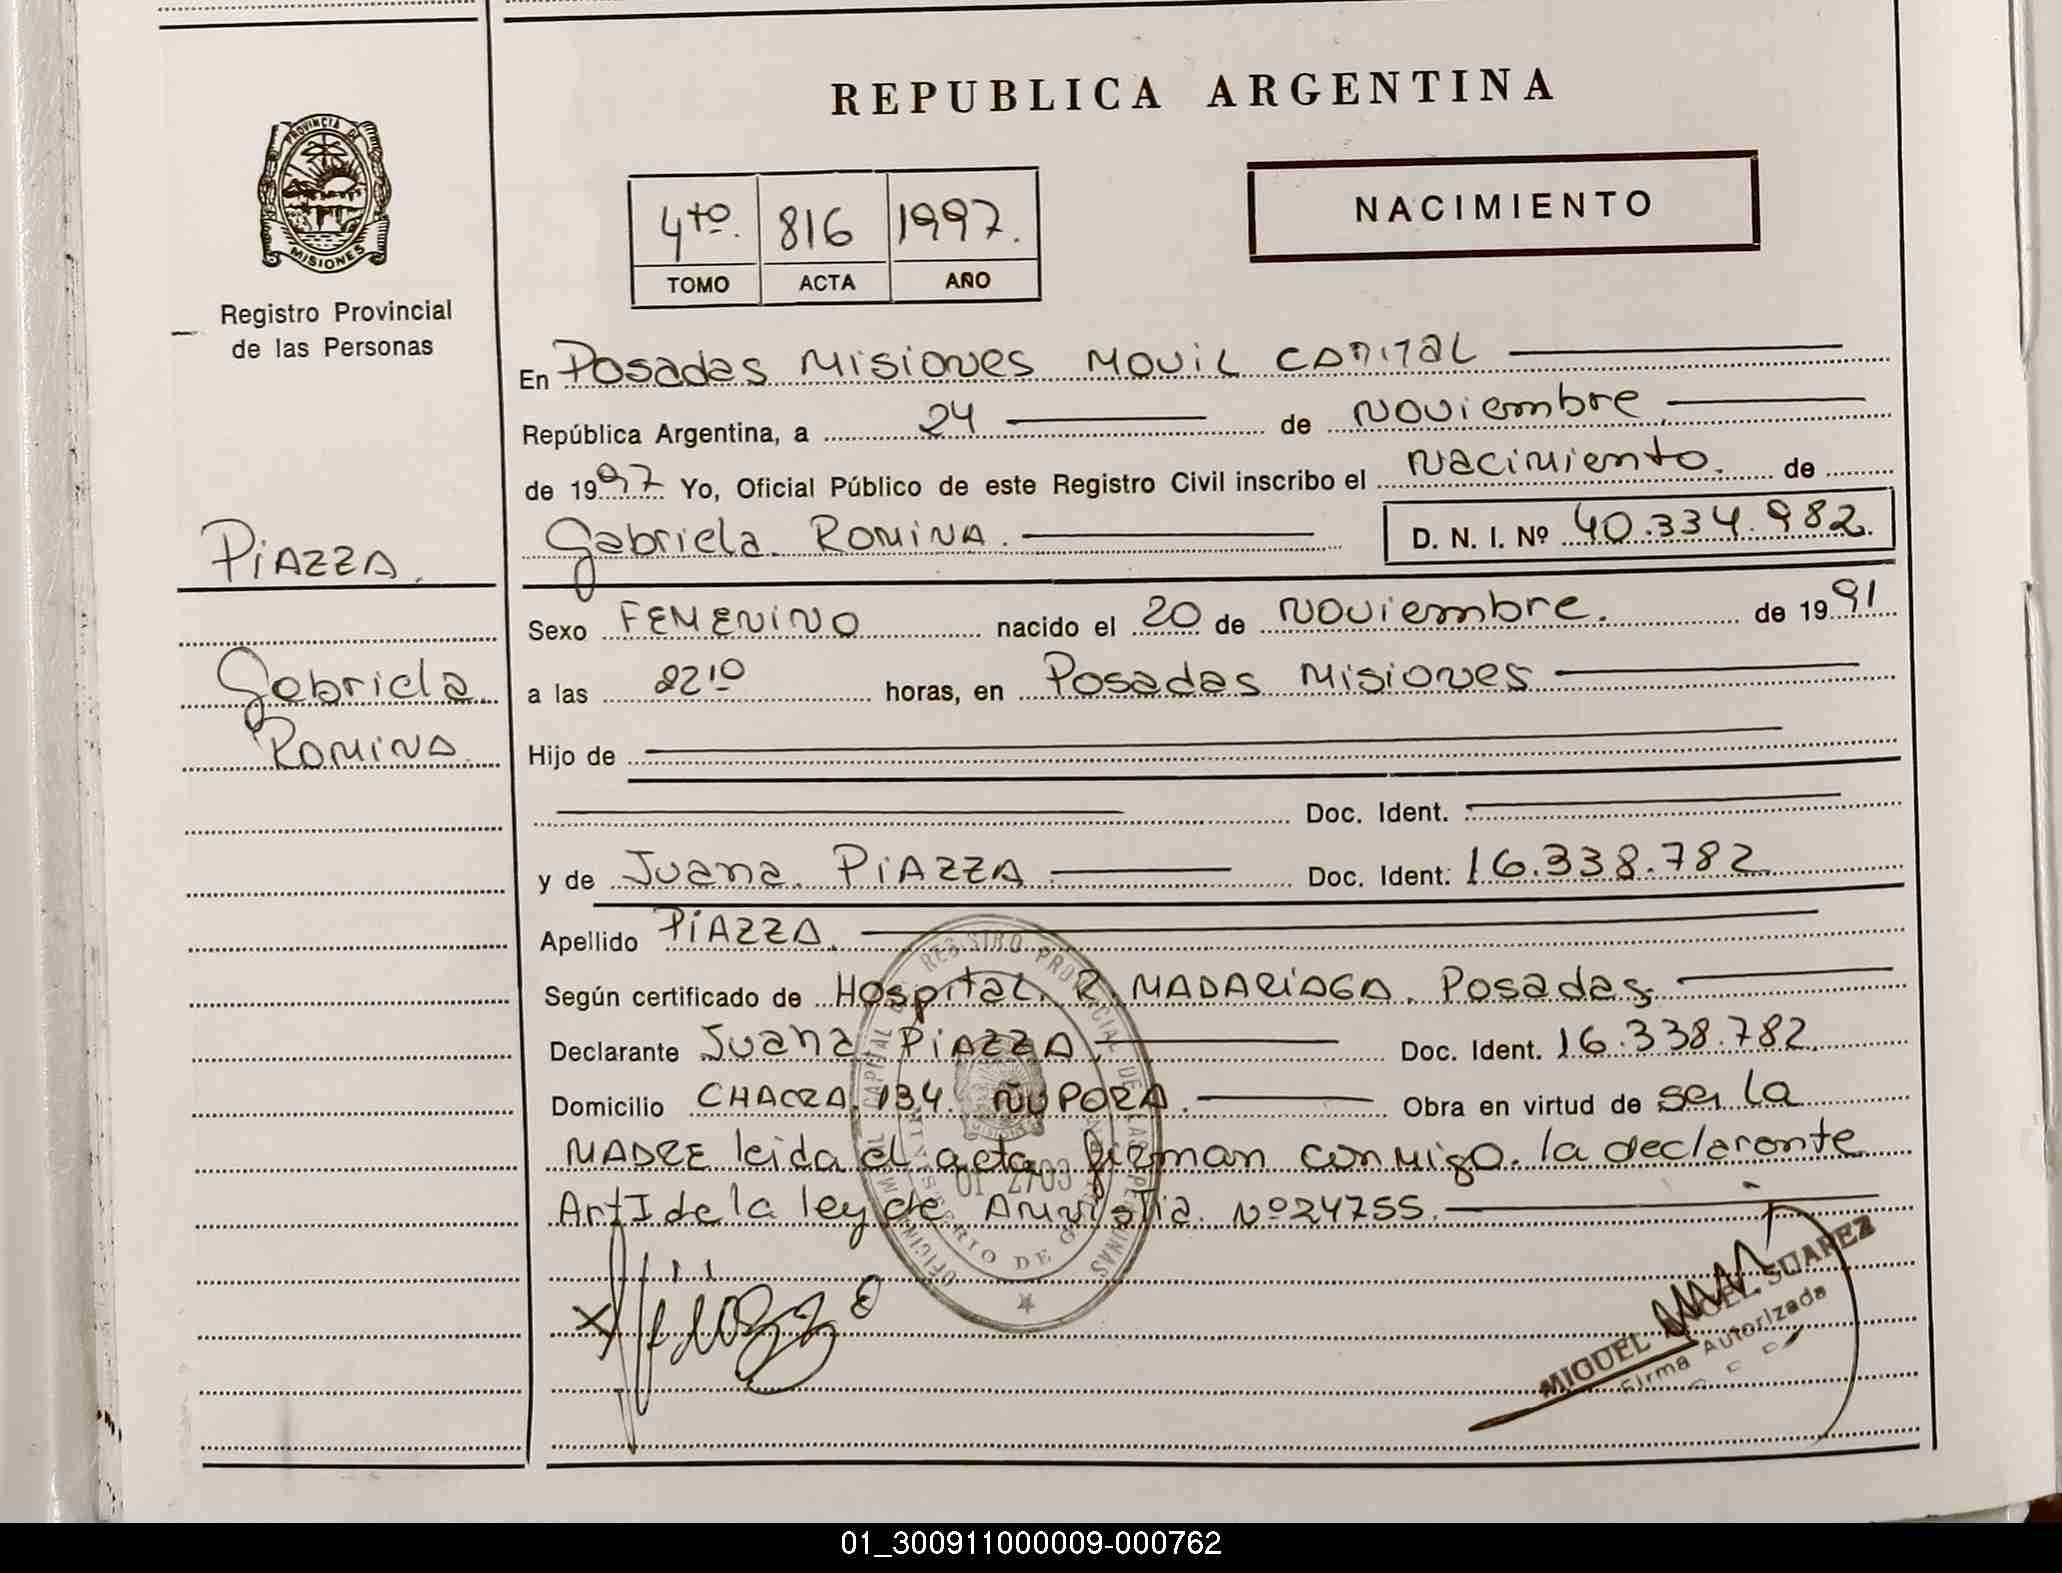 REPUBLICA ARGENTINA
PROVINCIA DE
MISIONES
Registro Provincial
de las Personas
4to. 816 1997.
TOMO ACTA AÑO
NACIMIENTO
En Posadas Misiones Movil Capital
República Argentina, a 24 de noviembre
de 1997 Yo, Oficial Público de este Registro Civil inscribo el nacimiento. de
PIAZZA.
Gabriela Romina. D. N. I. Nº 40.334.982.
Sexo FEMENINO nacido el 20 de noviembre. de 1991
Gabriela
Romina
a las 22 10 horas, en Posadas Misiones
Hijo de
Doc. Ident.
y de Juana PIAZZA Doc. Ident. 16.338.782
Apellido PIAZZA.
Según certificado de Hospital R. MADARIAGA. Posadas
Declarante Juana PIAZZA. Doc. Ident. 16.338.782
Domicilio CHACRA 134 ÑU PORA. Obra en virtud de ser la
MADRE leida el acta firman conmigo. la declarante
Art I de la ley de Amnistia Nº 24755.
REGISTRO PROVINCIAL DE LAS PERSONAS
MINISTERIO DE
MIGUEL ANGEL SUAREZ
Firma Autorizada
01_300911000009-000762